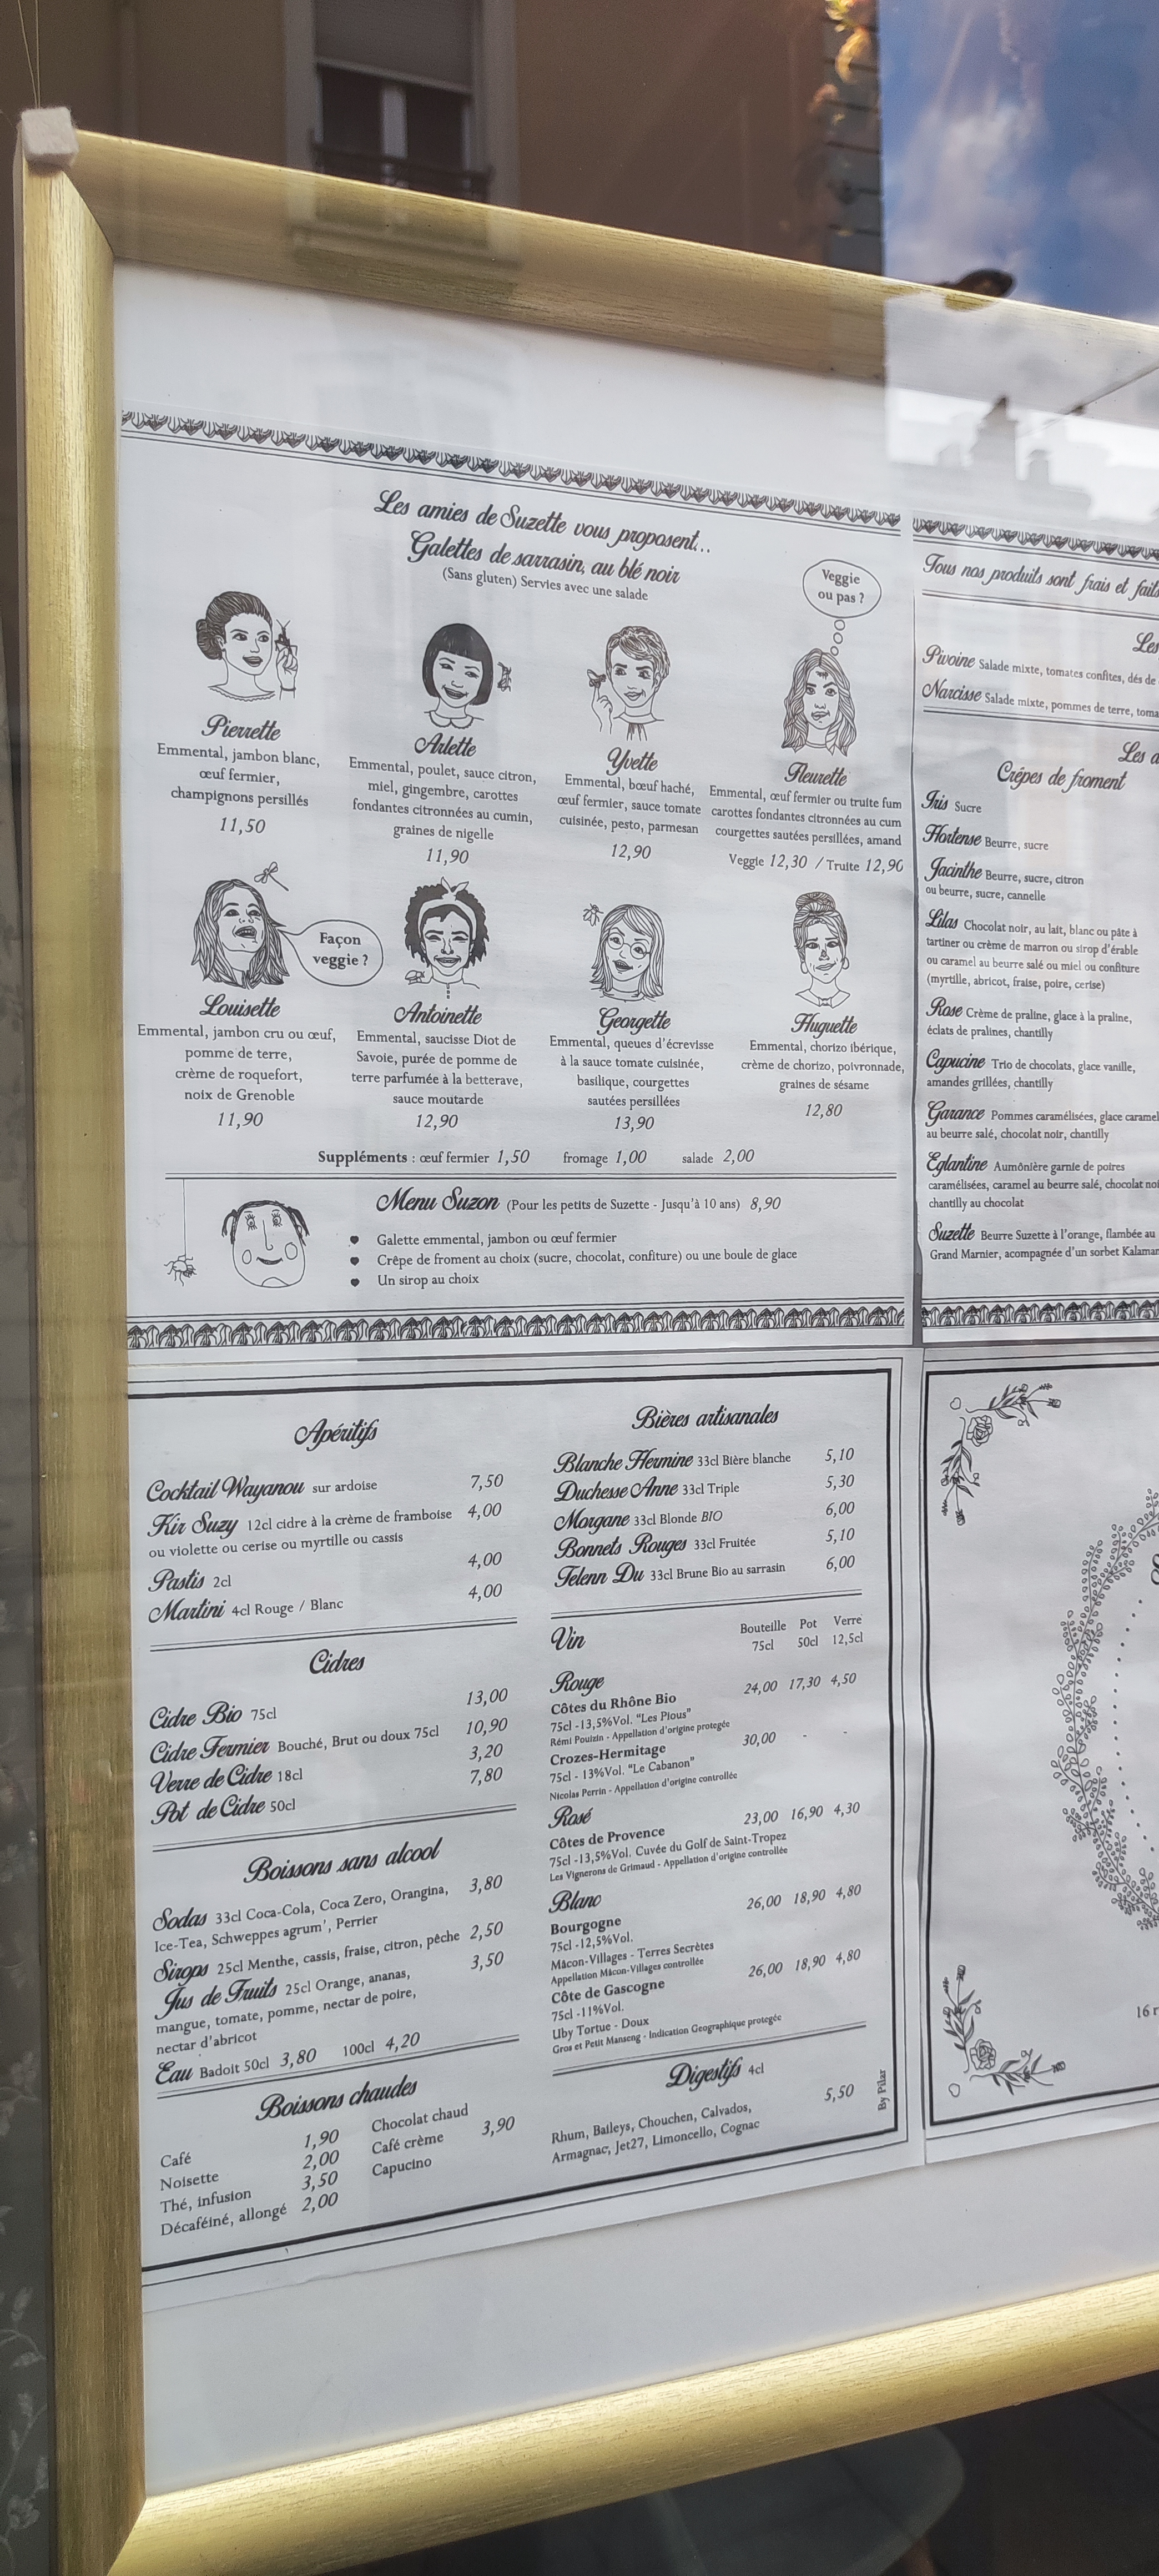 Les amies de Suzette vous proposent...
Galettes de sarrasin, au blé noir
(Sans gluten) Servies avec une salade
Veggie
ou pas ?
Pierrette
Emmental, jambon blanc,
œuf fermier,
champignons persillés
11,50
Arlette
Emmental, poulet, sauce citron,
miel, gingembre, carottes
fondantes citronnées au cumin,
graines de nigelle
11,90
Yvette
Emmental, bœuf haché,
œuf fermier, sauce tomate
cuisinée, pesto, parmesan
12,90
Fleurette
Emmental, œuf fermier ou truite fum
carottes fondantes citronnées au cum
courgettes sautées persillées, amand
Veggie 12,30 / Truite 12,90
Façon
veggie ?
Louisette
Emmental, jambon cru ou œuf,
pomme de terre,
crème de roquefort,
noix de Grenoble
11,90
Antoinette
Emmental, saucisse Diot de
Savoie, purée de pomme de
terre parfumée à la betterave,
sauce moutarde
12,90
Georgette
Emmental, queues d'écrevisse
à la sauce tomate cuisinée,
basilique, courgettes
sautées persillées
13,90
Huguette
Emmental, chorizo ibérique,
crème de chorizo, poivronnade,
graines de sésame
12,80
Suppléments : œuf fermier 1,50 fromage 1,00 salade 2,00
Menu Suzon (Pour les petits de Suzette - Jusqu'à 10 ans) 8,90
Galette emmental, jambon ou œuf fermier
Crêpe de froment au choix (sucre, chocolat, confiture) ou une boule de glace
Un sirop au choix
Tous nos produits sont frais et faits
Les
Pivoine Salade mixte, tomates confites, dés de
Narcisse Salade mixte, pommes de terre, toma
Les d
Crêpes de froment
Iris Sucre
Hortense Beurre, sucre
Jacinthe Beurre, sucre, citron
ou beurre, sucre, cannelle
Lilas Chocolat noir, au lait, blanc ou pâte à
tartiner ou crème de marron ou sirop d'érable
ou caramel au beurre salé ou miel ou confiture
(myrtille, abricot, fraise, poire, cerise)
Rose Crème de praline, glace à la praline,
éclats de pralines, chantilly
Capucine Trio de chocolats, glace vanille,
amandes grillées, chantilly
Garance Pommes caramélisées, glace caramel
au beurre salé, chocolat noir, chantilly
Eglantine Aumônière garnie de poires
caramélisées, caramel au beurre salé, chocolat noi
chantilly au chocolat
Suzette Beurre Suzette à l'orange, flambée au
Grand Marnier, acompagnée d'un sorbet Kalaman
Apéritifs
Cocktail Wayanou sur ardoise 7,50
Kir Suzy 12cl cidre à la crème de framboise 4,00
ou violette ou cerise ou myrtille ou cassis
Pastis 2cl 4,00
Martini 4cl Rouge / Blanc 4,00
Cidres
Cidre Bio 75cl 13,00
Cidre Fermier Bouché, Brut ou doux 75cl 10,90
Verre de Cidre 18cl 3,20
Pot de Cidre 50cl 7,80
Boissons sans alcool
Sodas 33cl Coca-Cola, Coca Zero, Orangina, 3,80
Ice-Tea, Schweppes agrum', Perrier
Sirops 25cl Menthe, cassis, fraise, citron, pêche 2,50
Jus de Fruits 25cl Orange, ananas, 3,50
mangue, tomate, pomme, nectar de poire,
nectar d'abricot
Eau Badoit 50cl 3,80 100cl 4,20
Boissons chaudes
Café 1,90
Noisette 2,00
Thé, infusion 3,50
Décaféiné, allongé 2,00
Chocolat chaud
Café crème 3,90
Capucino
Bières artisanales
Blanche Hermine 33cl Bière blanche 5,10
Duchesse Anne 33cl Triple 5,30
Morgane 33cl Blonde BIO 6,00
Bonnets Rouges 33cl Fruitée 5,10
Telenn Du 33cl Brune Bio au sarrasin 6,00
Vin Bouteille Pot Verre
75cl 50cl 12,5cl
Rouge
Côtes du Rhône Bio 24,00 17,30 4,50
75cl -13,5%Vol. "Les Pious"
Rémi Pouizin - Appellation d'origine protegée
Crozes-Hermitage 30,00 - -
75cl - 13%Vol. "Le Cabanon"
Nicolas Perrin - Appellation d'origine controllée
Rosé
Côtes de Provence 23,00 16,90 4,30
75cl -13,5%Vol. Cuvée du Golf de Saint-Tropez
Les Vignerons de Grimaud - Appellation d'origine controllée
Blanc
Bourgogne 26,00 18,90 4,80
75cl -12,5%Vol.
Mâcon-Villages - Terres Secrètes
Appellation Mâcon-Villages controllée
Côte de Gascogne 26,00 18,90 4,80
75cl -11%Vol.
Uby Tortue - Doux
Gros et Petit Manseng - Indication Geographique protegée
Digestifs 4cl
Rhum, Baileys, Chouchen, Calvados, 5,50
Armagnac, Jet27, Limoncello, Cognac
By Pilar
16 r